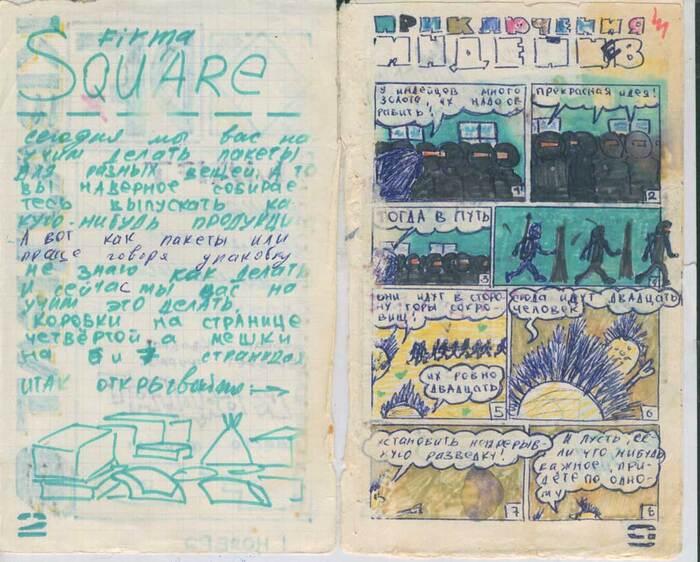 Firma
SQUARE
сегодня мы вас на
учим делать пакеты
для разных вещей. А то
вы наверное собирае-
тесь выпускать ка-
кую-нибудь продукци
А вот как пакеты или
проще говоря упаковку
не знаю как делать
и сейчас мы вас на
учим это делать.
коробки на странице
четвёртой а мешки
на 6 и 7 страницах
итак открывайте →
ПРИКЛЮЧЕНИЯ
ИНДЕЙЦЕВ
У индейцев много
золота, их надо ог-
рабить!
1
Прекрасная идея!
2
ТОГДА В ПУТЬ
3
4
Они идут в сторо-
ну горы сокро-
вищ!
Их ровно
двадцать
5
Сюда идут двадцать
человек
6
Установить непрерыв-
ную разведку!
7
И пусть, ес-
ли что нибудь
важное при-
дёте по одно-
му
8